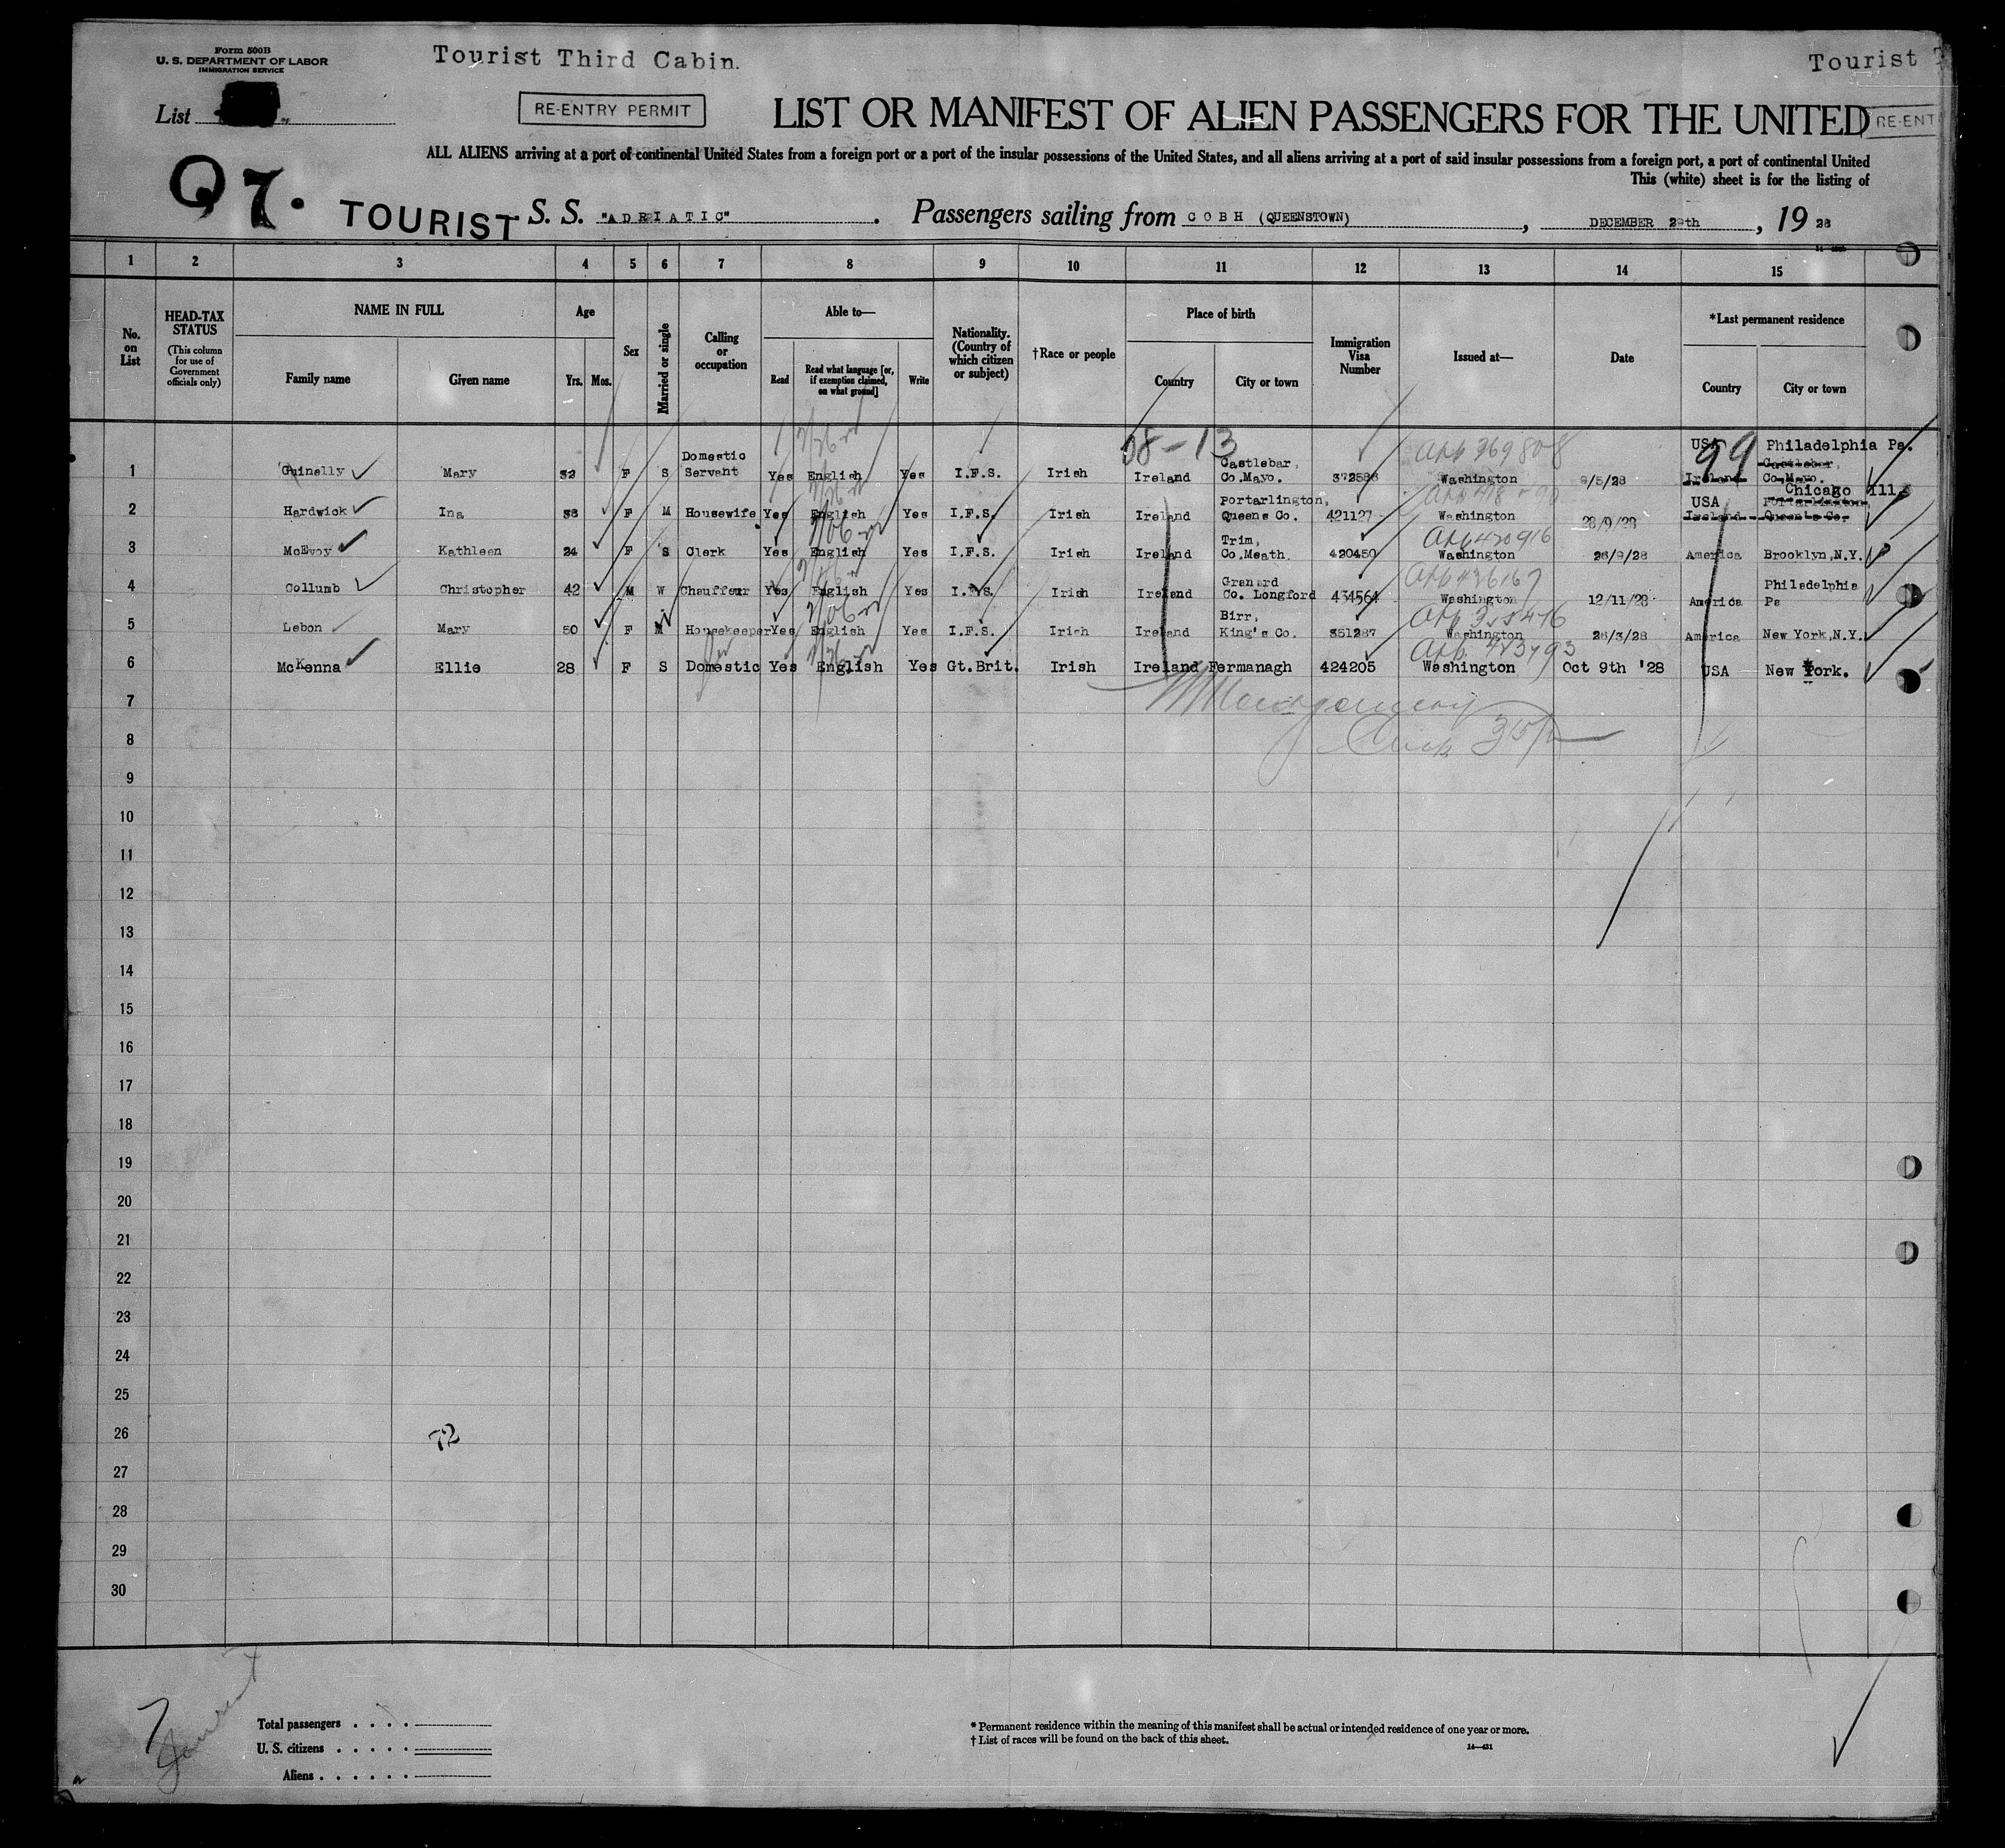 Form 500B
U. S. DEPARTMENT OF LABOR
IMMIGRATION SERVICE
Tourist Third Cabin.
Tourist
List
RE-ENTRY PERMIT
LIST OR MANIFEST OF ALIEN PASSENGERS FOR THE UNITED
RE-ENT
ALL ALIENS arriving at a port of continental United States from a foreign port or a port of the insular possessions of the United States, and all aliens arriving at a port of said insular possessions from a foreign port, a port of continental United
This (white) sheet is for the listing of
Q 7.
TOURIST S. S. "ADRIATIC". Passengers sailing from COBH (QUEENSTOWN), DECEMBER 29th, 19 28
1 2 3 4 5 6 7 8 9 10 11 12 13 14 15
No. on List
HEAD-TAX STATUS
(This column for use of Government officials only)
NAME IN FULL
Family name Given name
Age
Yrs. Mos.
Sex
Married or single
Calling or occupation
Able to—
Read
Read what language [or, if exemption claimed, on what ground]
Write
Nationality. (Country of which citizen or subject)
†Race or people
Place of birth
Country City or town
Immigration Visa Number
Issued at—
Date
*Last permanent residence
Country City or town
38-13
99
1 Guinelly Mary 32 F S Domestic Servant Yes English Yes I.F.S. Irish Ireland Castlebar, Co.Mayo. 372588 Washington 9/5/28 USA Philadelphia Pa.
Ireland Castlebar, Co.Mayo.
2 Hardwick Ina 38 F M Housewife Yes English Yes I.F.S. Irish Ireland Portarlington, Queens Co. 421127 Washington 28/9/28 USA Chicago Ills
Ireland Portarlington, Queens Co.
3 McEvoy Kathleen 24 F S Clerk Yes English Yes I.F.S. Irish Ireland Trim, Co.Meath. 420450 Washington 26/9/28 America Brooklyn,N.Y.
4 Collumb Christopher 42 M W Chauffeur Yes English Yes I.F.S. Irish Ireland Granard Co. Longford 434564 Washington 12/11/28 America Philadelphia Pa
5 Lebon Mary 50 F M Housekeeper Yes English Yes I.F.S. Irish Ireland Birr, King's Co. 351287 Washington 26/3/28 America New York,N.Y.
6 McKenna Ellie 28 F S Domestic Yes English Yes Gt.Brit. Irish Ireland Fermanagh 424205 Washington Oct 9th '28 USA New York.
7
8
9
10
11
12
13
14
15
16
17
18
19
20
21
22
23
24
25
26
72
27
28
29
30
7
Tourist
Total passengers . . . .
U. S. citizens . . . . .
Aliens . . . . . .
* Permanent residence within the meaning of this manifest shall be actual or intended residence of one year or more.
† List of races will be found on the back of this sheet.
14—431